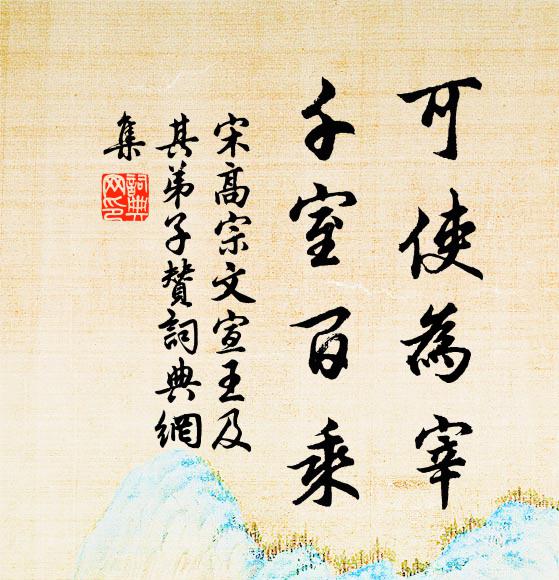 可使為宰
千室百乘
宋高宗文宣王及
其弟子贊詞典網
集
詞典
网印